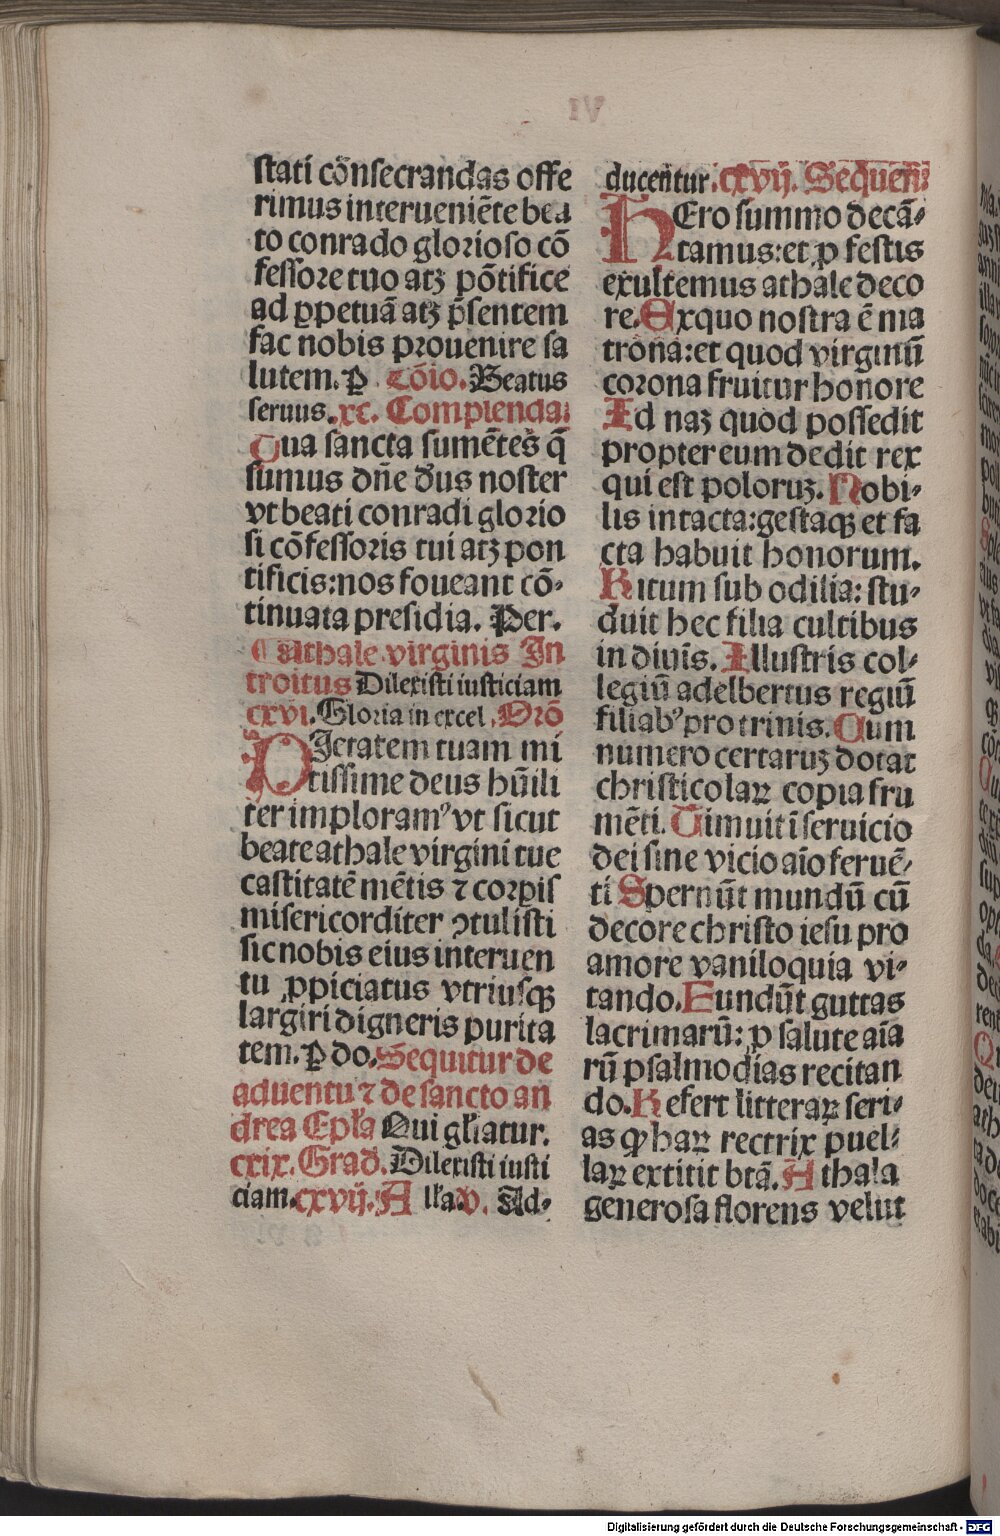 stati cōnsecrandas offe
rimus interueniēte bea
to conrado glorioso cō
fessore tuo atꝫ pōtifice
ad ꝑpetuā atꝫ p̄sentem
fac nobis prouenire sa
lutem. ꝑ Cōio. Beatus
seruus. xc. Complenda.
Tua sancta sumētes q̄
sumus dn̄e de᷒us noster
vt beati conradi glorio
si cōfessoris tui atꝫ pon
tificis: nos foueant cō-
tinuata presidia. Per.
¶ Athale virginis In
troitus Dilexisti iusticiam
cxvi. Gloria in excel. Orō
PIetatem tuam mi
tissime deus hūili
ter imploramꝰ vt sicut
beate athale virgini tue
castitatē mētis ⁊ corꝑis
misericorditer ꝯtulisti
sic nobis eius interuen
tu ꝓpiciatus vtriusqꝫ
largiri digneris purita
tem. ꝑ do. Sequitur de
aduentu ⁊ de sancto an
drea Epl̄a Qui gl̄iatur.
cxix. Grad. Dilexisti iusti
ciam. cxvij. A lla. v. Ad-
ducen̄tur. cxvij. Sequen̄.
HEro summo decā-
tamus: et ꝓ festis
exultemus athale deco
re. Exquo nostra ē ma
trona: et quod virginū
corona fruitur honore
Id naꝫ quod possedit
propter eum dedit rex
qui est poloruꝫ. Nobi-
lis intacta: gestaqꝫ et fa
cta habuit honorum.
Ritum sub odilia: stu-
duit hec filia cultibus
in diuīs. Illustris col-
legiū adelbertus regiū
filiabꝰ pro trinis. Cum
numero certaruꝫ dotat
christicolaꝝ copia fru
mēti. Timuit ī seruicio
dei sine vicio aīo feruē-
ti Spernūt mundū cū
decore christo iesu pro
amore vaniloquia vi-
tando. Fundūt guttas
lacrimarū: ꝓ salute aīa
rū psalmodias recitan
do. Refert litteraꝝ seri-
as ꝙ haꝝ rectrix puel-
laꝝ extitit btā. Athala
generosa florens velut